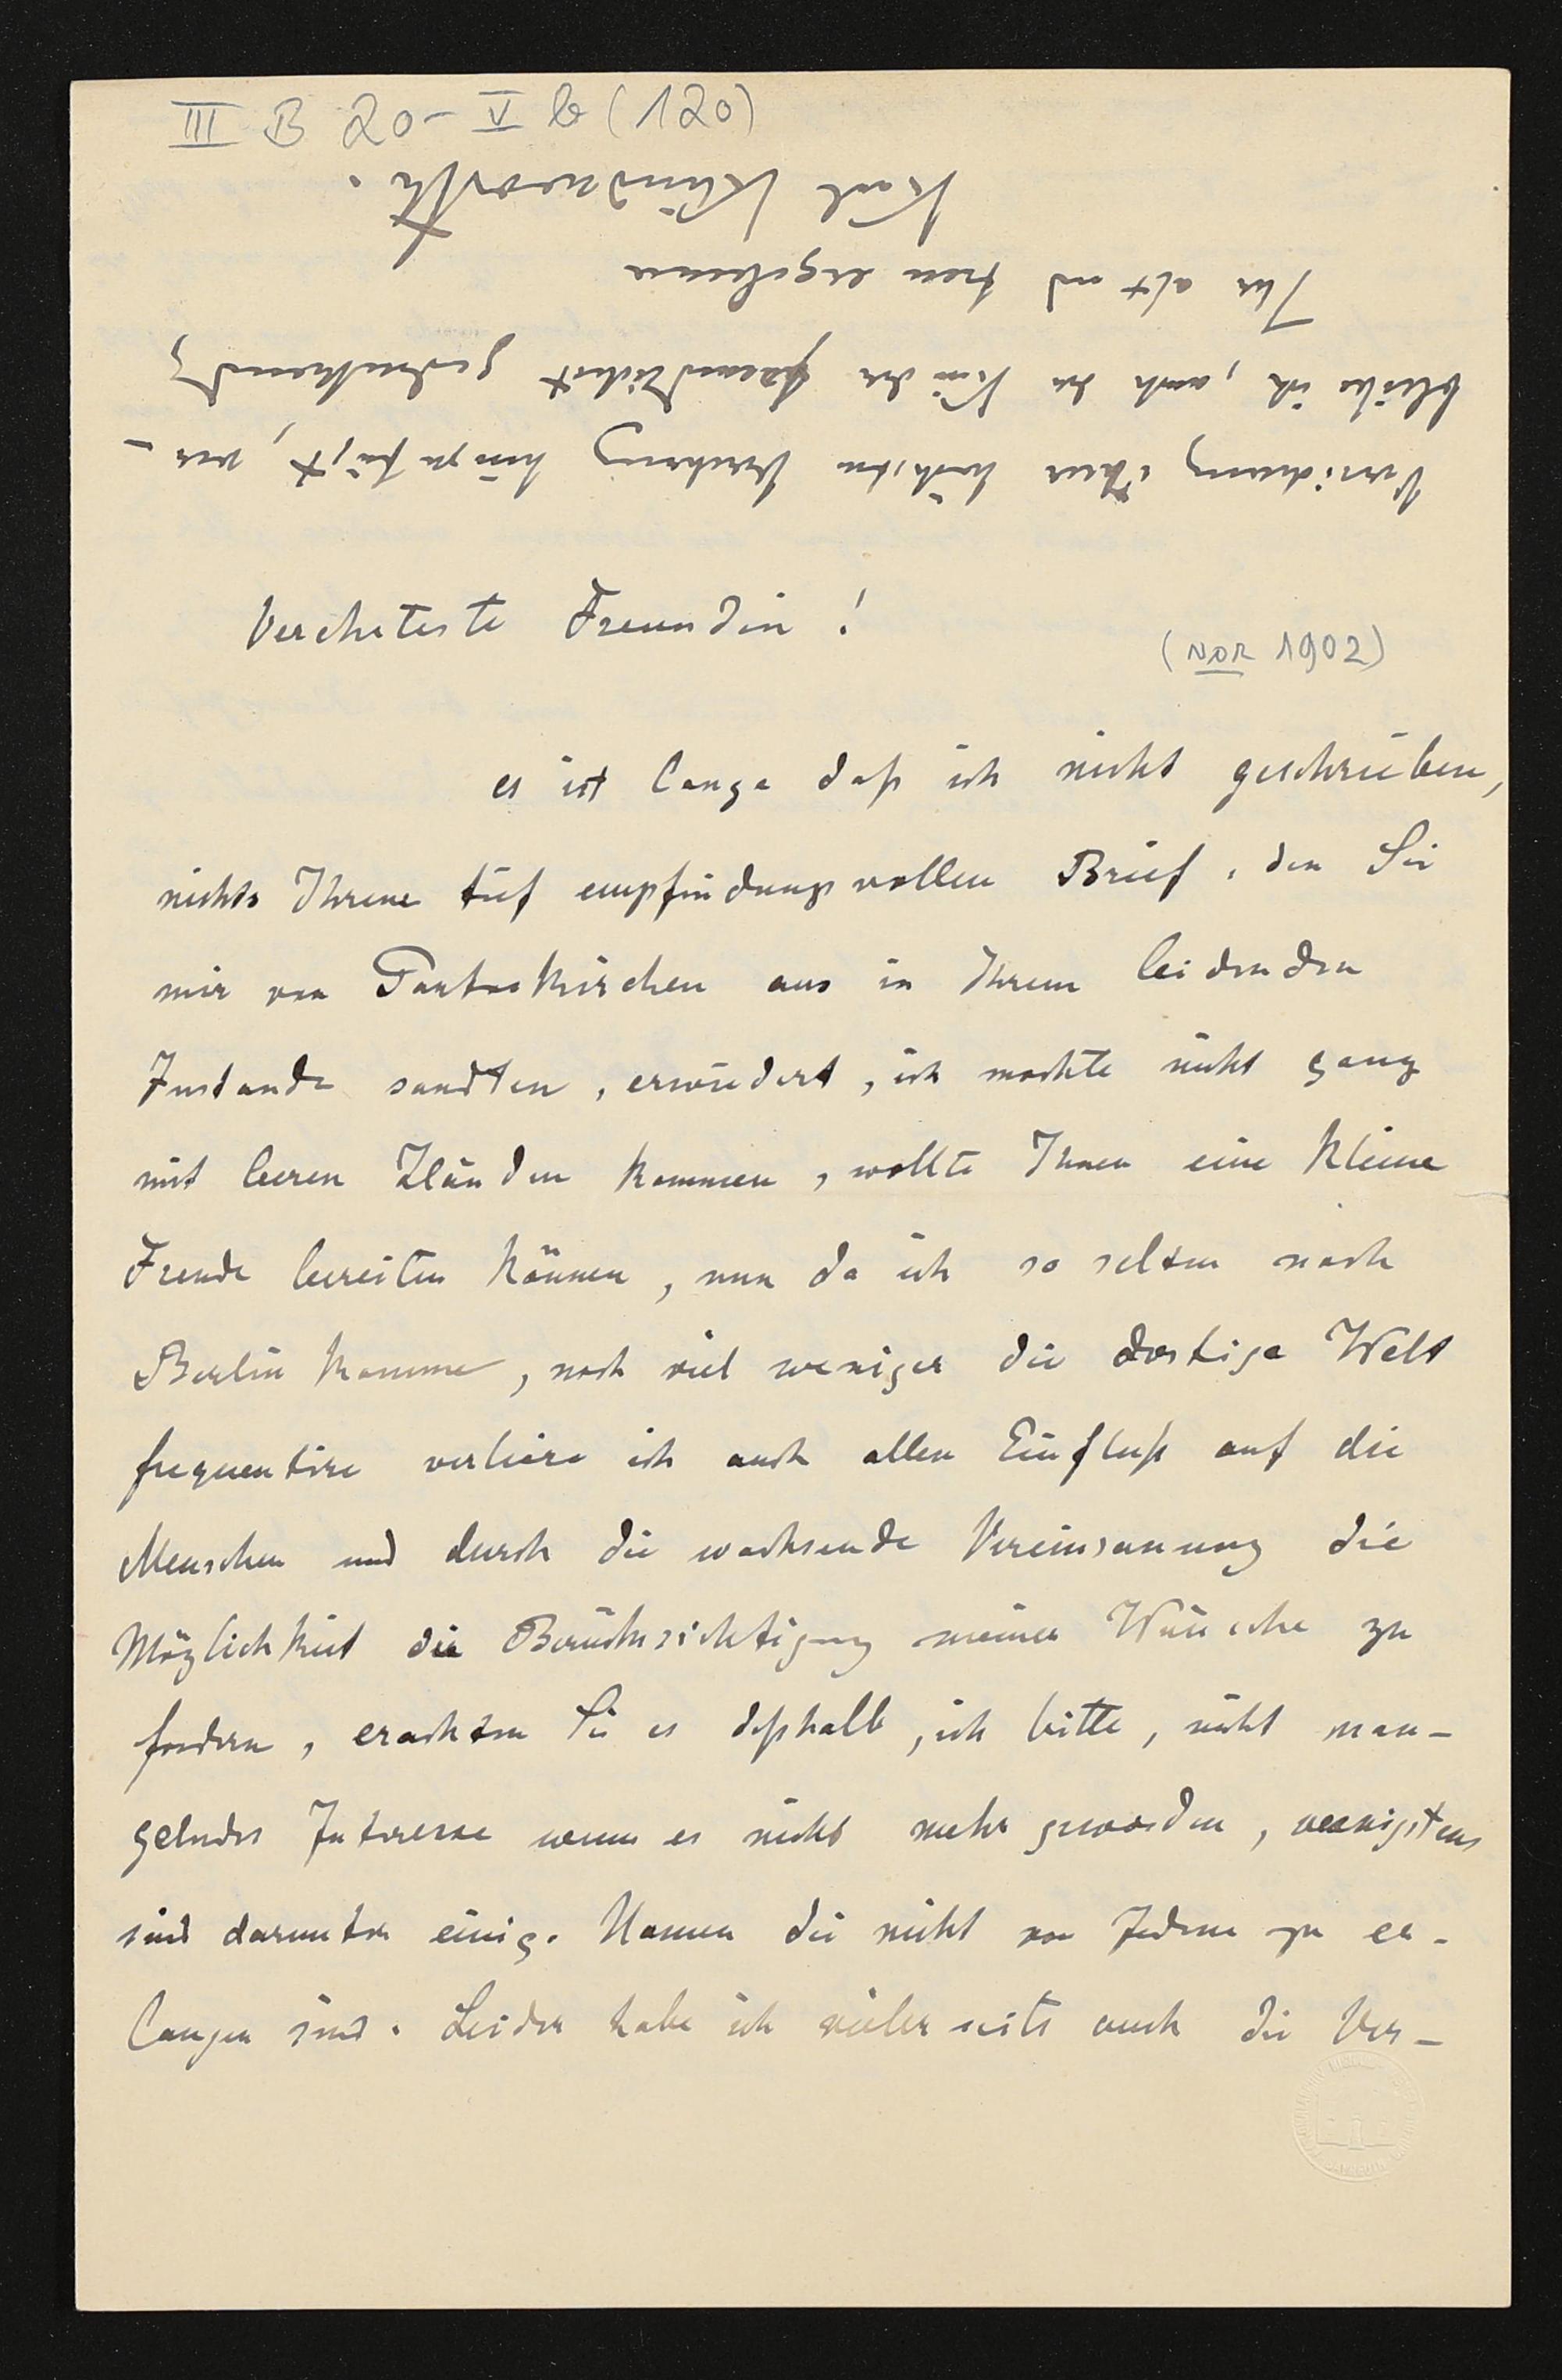 III B 20 - V b (120)
Versicherung ihrer höchsten Verehrung hinzufügt, ver-
bleibe ich, auch der Kinder freundlichst gedenkend,
Ihr alt und treu ergebener
Karl Klindworth.
Verehrteste Freundin!
(VOR 1902)
es ist lange daß ich nicht geschrieben,
nichts Ihrem tief empfindungsvollen Brief, den Sie
mir von Partenkirchen aus in Ihrem leidenden
Zustande sandten, erwiedert, ich mochte nicht ganz
mit leeren Händen kommen, wollte Ihnen eine kleine
Freude bereiten können, nun da ich so selten nach
Berlin komme, noch viel weniger die dortige Welt
frequentire verliere ich auch allen Einfluß auf die
Menschen und durch die wachsende Vereinsamung die
Möglichkeit die Berücksichtigung meiner Wünsche zu
fordern, erachten Sie es deßhalb, ich bitte, nicht man-
gelndes Interesse wenn es nicht mehr geworden, wenigstens
sind darunter einige Namen die nicht von Jedem zu er-
langen sind. Leider habe ich vielerseits auch die Ver-